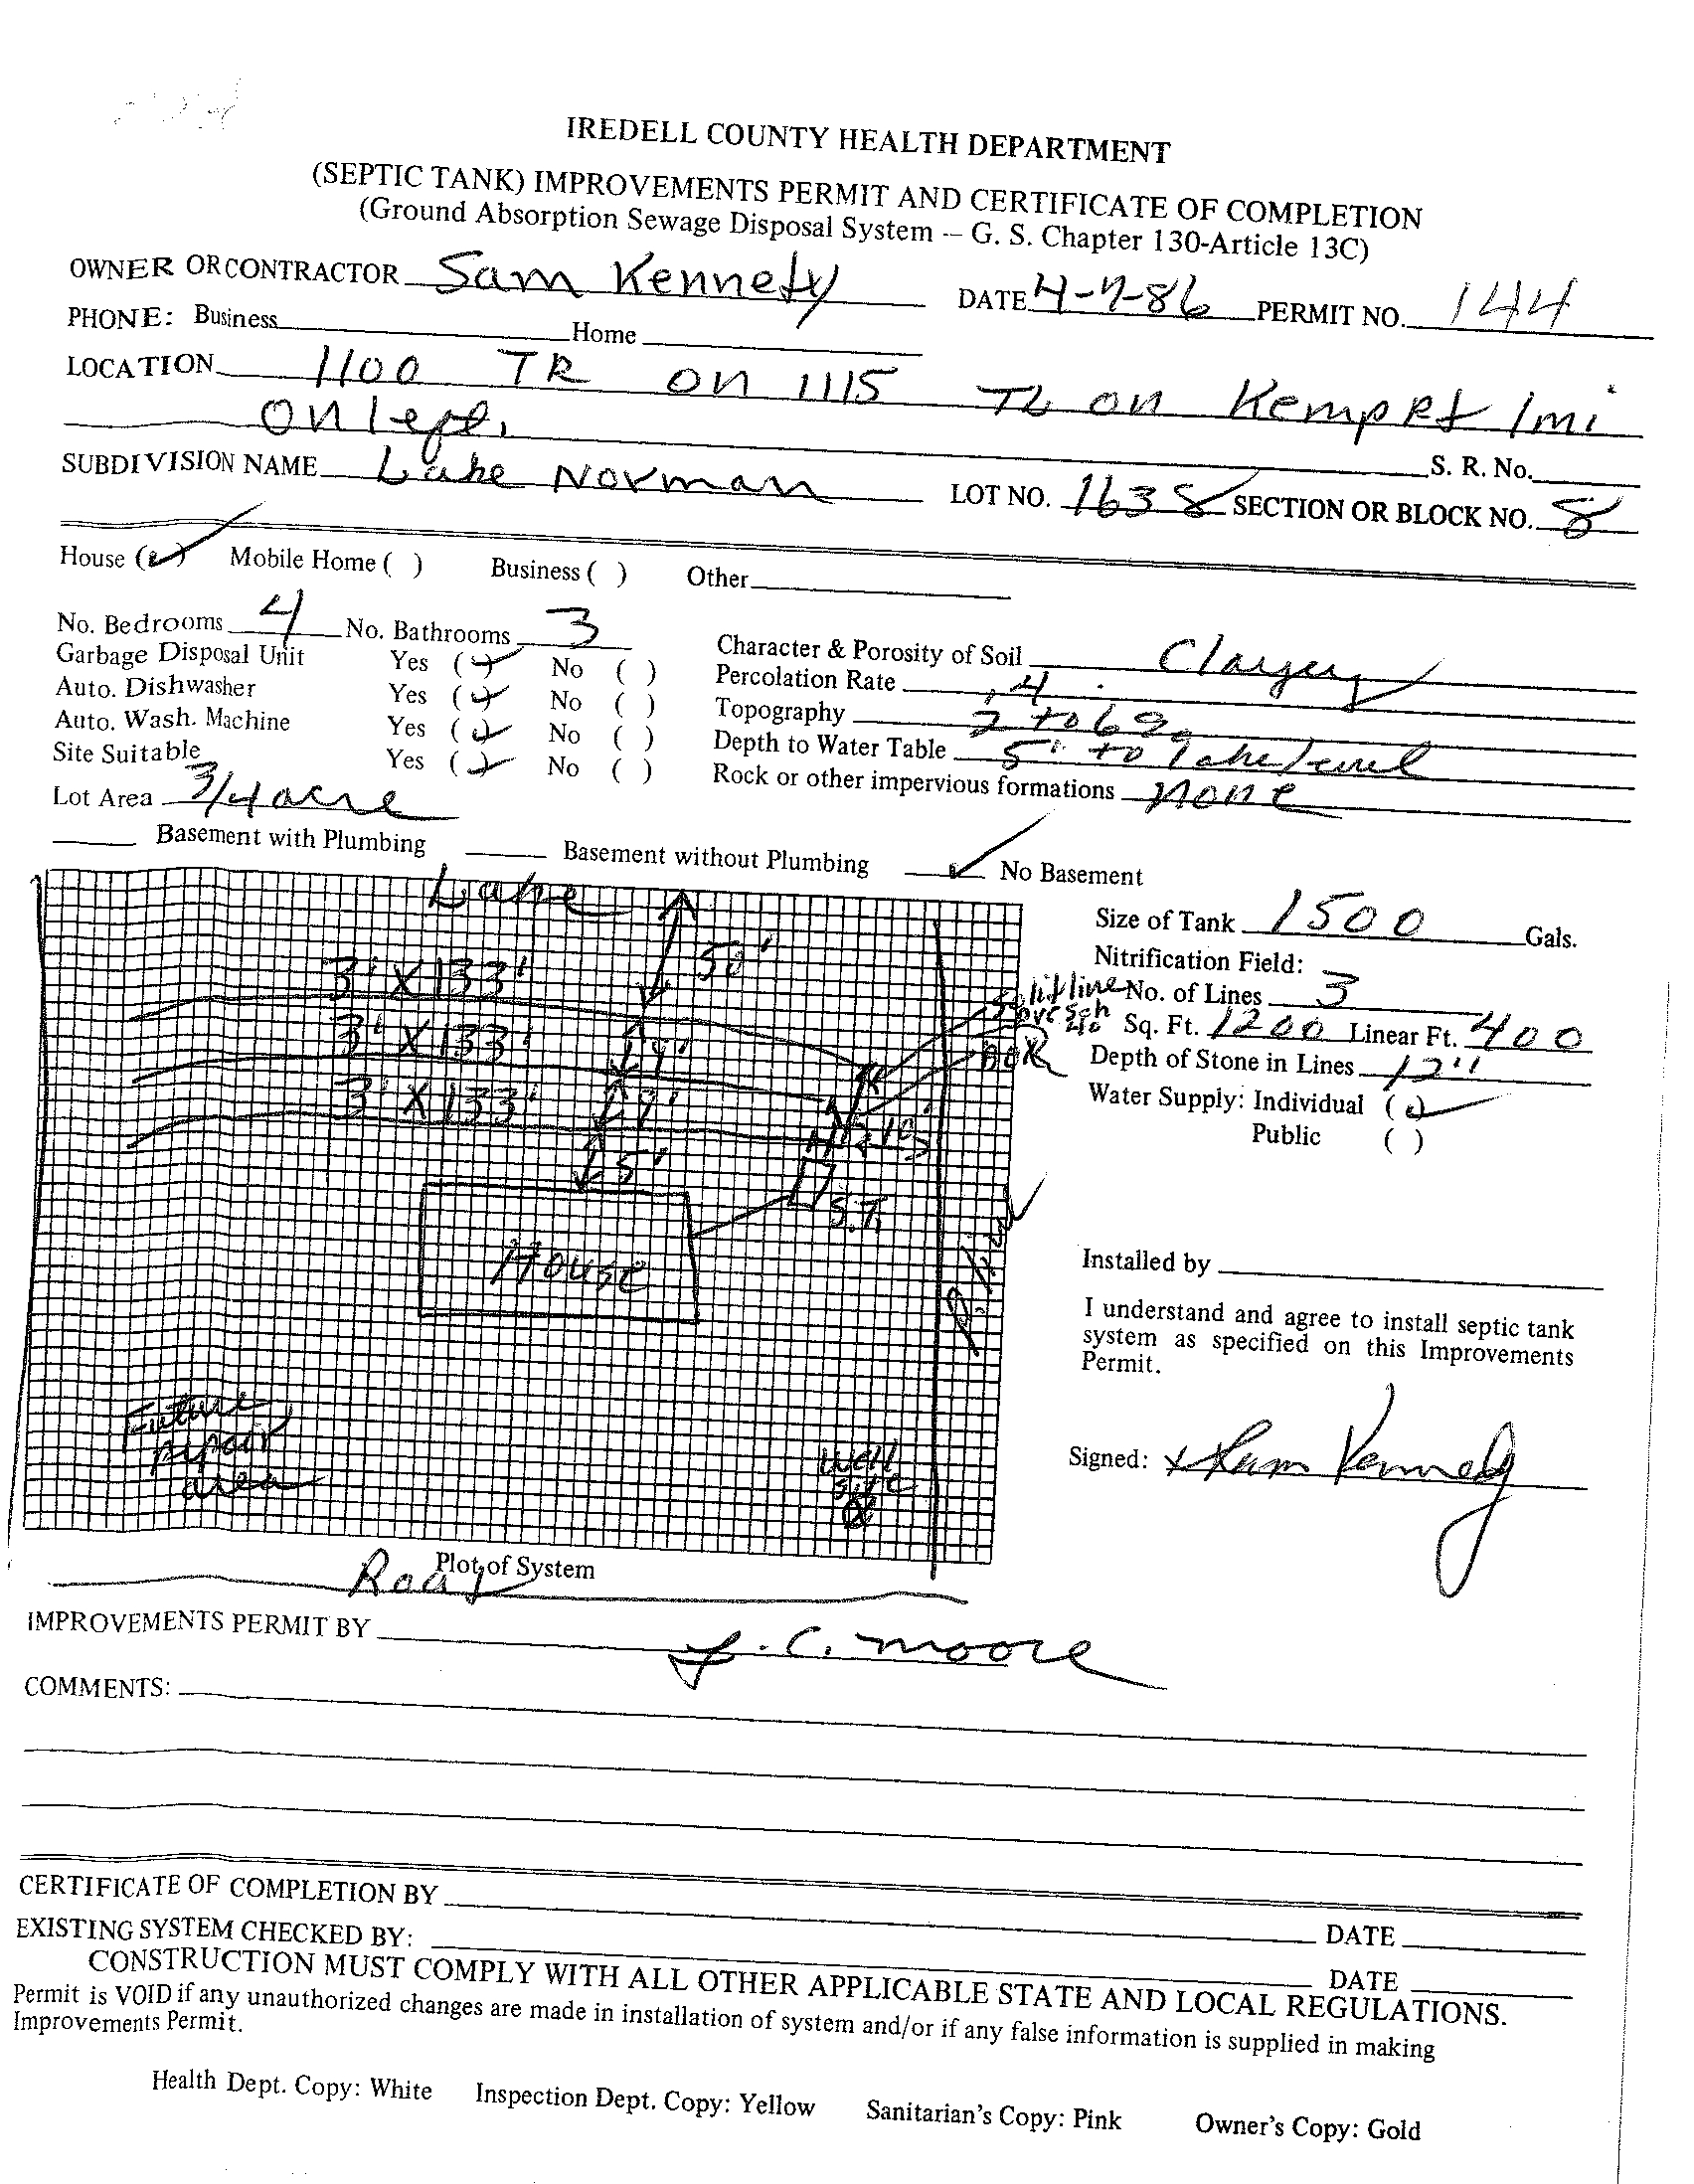 IREDELL COUNTY HEALTH DEPARTMENT
(SEPTIC TANK) IMPROVEMENTS PERMIT AND CERTIFICATE OF COMPLETION
(Ground Absorption Sewage Disposal System — G. S. Chapter 130-Article 13C)
OWNER OR CONTRACTOR Sam Kennety DATE 4-7-86 PERMIT NO. 144
PHONE: Business Home
LOCATION 1100 TR on 1115 TL on Kemp Rd 1 mi
on left.
S. R. No.
SUBDIVISION NAME Lake Norman LOT NO. 1638 SECTION OR BLOCK NO. 8
House (✓) Mobile Home ( ) Business ( ) Other
No. Bedrooms 4 No. Bathrooms 3
Garbage Disposal Unit Yes (✓) No ( )
Auto. Dishwasher Yes (✓) No ( )
Auto. Wash. Machine Yes (✓) No ( )
Site Suitable Yes (✓) No ( )
Lot Area 3/4 acre
Character & Porosity of Soil Clayey
Percolation Rate .4
Topography 2 to 6%
Depth to Water Table 5' to lake level
Rock or other impervious formations none
Basement with Plumbing Basement without Plumbing ✓ No Basement
Lake
50'
3' X 133'
3' X 133'
9'
3' X 133'
9'
10'
5'
S.T.
House
Future
repair
area
well
site
Split line
PVC Sch
40
BOX
Size of Tank 1500 Gals.
Nitrification Field:
No. of Lines 3
Sq. Ft. 1200 Linear Ft. 400
Depth of Stone in Lines 12"
Water Supply: Individual (✓)
Public ( )
Installed by
I understand and agree to install septic tank
system as specified on this Improvements
Permit.
Signed: x Sam Kennedy
Plot of System
Road
IMPROVEMENTS PERMIT BY J. C. Moore
COMMENTS:
CERTIFICATE OF COMPLETION BY DATE
EXISTING SYSTEM CHECKED BY: DATE
CONSTRUCTION MUST COMPLY WITH ALL OTHER APPLICABLE STATE AND LOCAL REGULATIONS.
Permit is VOID if any unauthorized changes are made in installation of system and/or if any false information is supplied in making
Improvements Permit.
Health Dept. Copy: White Inspection Dept. Copy: Yellow Sanitarian's Copy: Pink Owner's Copy: Gold